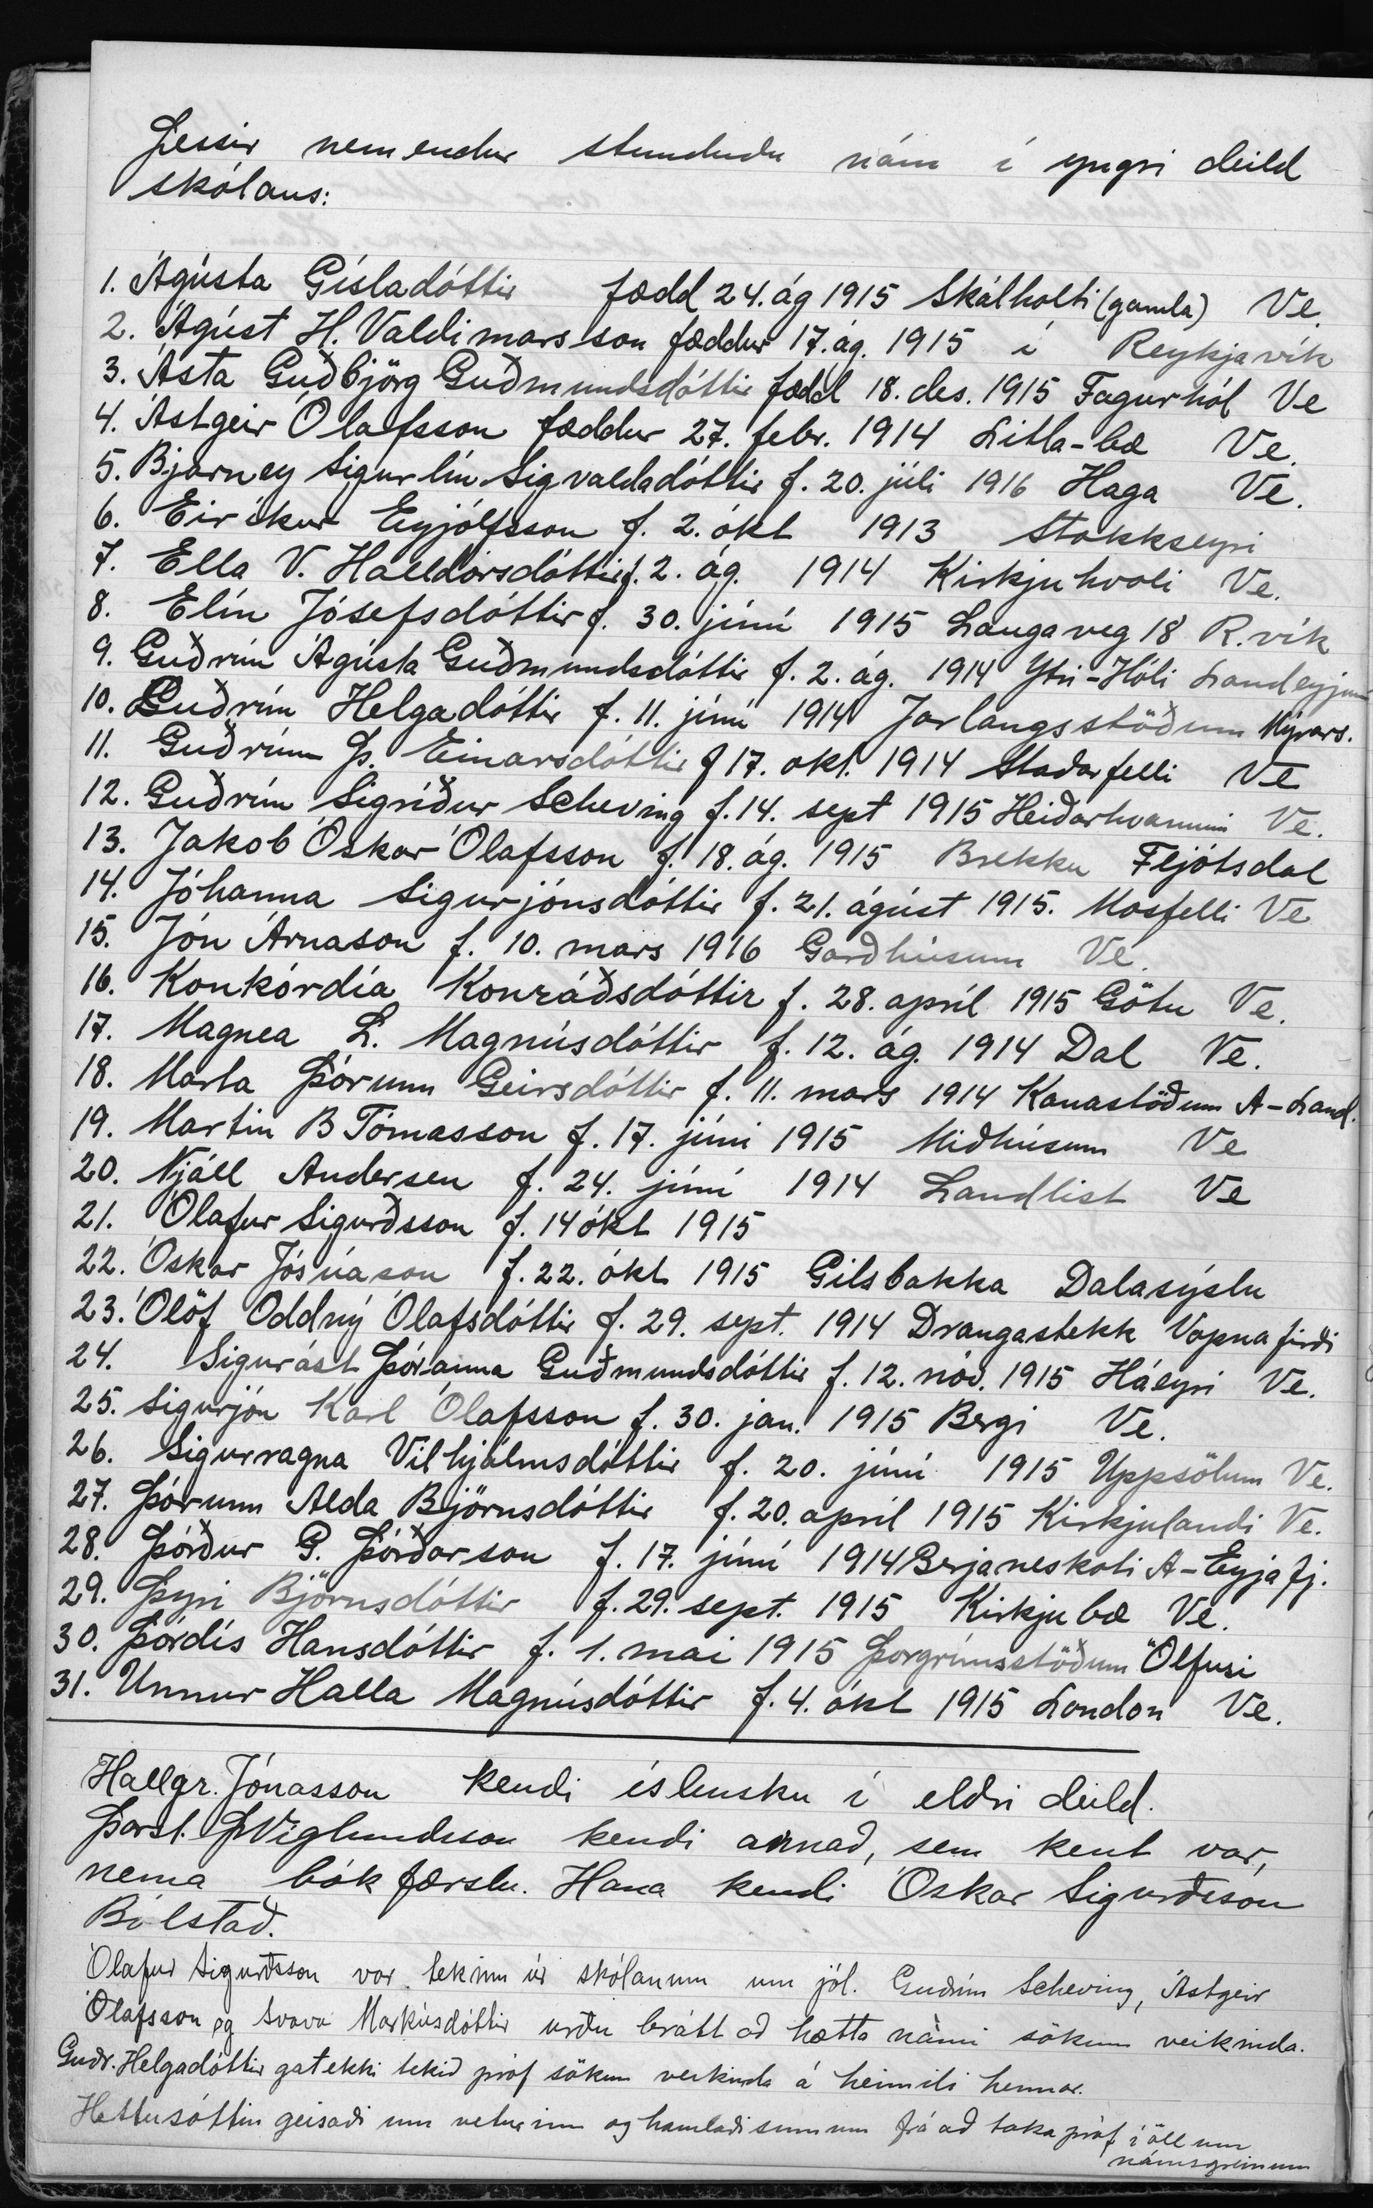 Þessir nemendur stunduðu nám í yngri deild
skólans:
1. Ágústa Gísladóttir fædd 24. ág 1915 Skálholti (gamla) Ve.
2. Ágúst H. Valdimarsson fæddur 17. ág. 1915 í Reykjavík
3. Ásta Guðbjörg Guðmundsdóttir fædd 18. des. 1915 Fagurhól Ve
4. Ástgeir Ólafsson fæddur 27. febr. 1914 Litla-bæ Ve.
5. Bjarney Sigurlín Sigvaldadóttir f. 20. júlí 1916 Haga Ve.
6. Eiríkur Eyjólfsson f. 2. ókt 1913 Stokkseyri
7. Ella V. Halldórsdóttir f. 2. ág. 1914 Kirkjuhvoli Ve.
8. Elín Jósefsdóttir f. 30. júní 1915 Laugaveg 18 R.vík
9. Guðrún Ágústa Guðmundsdóttir f. 2. ág. 1914 Ytri-Hóli Landeyjum
10. Guðrún Helgadóttir f. 11. júní 1914 Jarlangsstöðum Mýrars.
11. Guðrúnn Þ. Einarsdóttir f 17. okt. 1914 Staðarfelli Ve
12. Guðrún Sigríður Scheving f. 14. sept 1915 Heiðarhvammi Ve.
13. Jakob Óskar Ólafsson f. 18. ág. 1915 Brekku Fljótsdal
14. Jóhanna Sigurjónsdóttir f. 21. ágúst 1915. Mosfelli Ve
15. Jón Árnason f. 10. mars 1916 Garðhúsum Ve.
16. Konkórdía Konráðsdóttir f. 28. apríl 1915 Götu Ve.
17. Magnea L. Magnúsdóttir f. 12. ág. 1914 Dal Ve.
18. Marta Þórunn Geirsdóttir f. 11. mars 1914 Kanastöðum A-Land.
19. Martin B Tómasson f. 17. júní 1915 Miðhúsum Ve
20. Njáll Andersen f. 24. júní 1914 Landlist Ve
21. Ólafur Sigurðsson f. 14 ókt 1915
22. Óskar Jósúason f. 22. ókt 1915 Gilsbakka Dalasýslu
23. Ólöf Oddný Ólafsdóttir f. 29. sept. 1914 Drangastekk Vopnafirði
24. Sigurást Þóranna Guðmundsdóttir f. 12. nóv. 1915 Háeyri Ve.
25. Sigurjón Karl Ólafsson f. 30. jan. 1915 Bergi Ve.
26. Sigurragna Vilhjálmsdóttir f. 20. júní 1915 Uppsölum Ve.
27. Þórunn Alda Björnsdóttir f. 20. apríl 1915 Kirkjulandi Ve.
28. Þórður G. Þórðarson f. 17. júní 1914 Berjaneskoti A-Eyjafj.
29. Þyri Björnsdóttir f. 29. sept. 1915 Kirkjubæ Ve.
30. Þórdís Hansdóttir f. 1. maí 1915 Þorgrímsstöðum Ölfusi
31. Unnur Halla Magnúsdóttir f. 4. ókt 1915 London Ve.
Hallgr. Jónasson kendi íslensku í eldri deild.
Þorst. Þ Víglundsson kendi annað, sem kent var,
nema bókfærslu. Hana kendi Óskar Sigurðsson
Bólstað.
Ólafur Sigurðsson var tekinn úr skólanum um jól. Guðrún Scheving, Ástgeir
Ólafsson og Svava Markúsdóttir urðu brátt að hætta námi sökum veikinda.
Guðr. Helgadóttir gat ekki tekið próf sökum veikinda á heimili hennar.
Hettusóttin geisaði um veturinn og hamlaði sumum frá að taka próf í öllum
námsgreinum